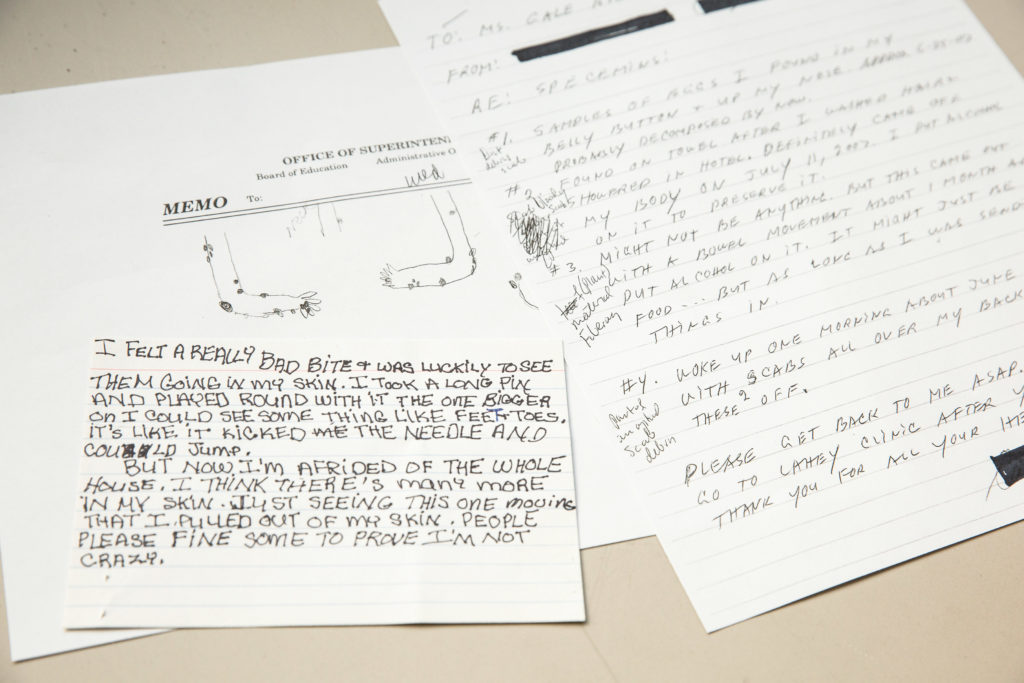 OFFICE OF SUPERINTEN
Board of Education Administrative O
MEMO To:
I FELT A REALLY BAD BITE & WAS LUCKILY TO SEE
THEM GOING IN MY SKIN. I TOOK A LONG PIN
AND PLAYED ROUND WITH IT THE ONE BIGGER
ON I COULD SEE SOME THING LIKE FEET TOES.
IT'S LIKE IT KICKED ME THE NEEDLE AND
COULD JUMP.
BUT NOW I'M AFRIDED OF THE WHOLE
HOUSE. I THINK THERE'S MANY MORE
IN MY SKIN. JUST SEEING THIS ONE MOVING
THAT I PULLED OUT OF MY SKIN. PEOPLE
PLEASE FINE SOME TO PROVE I'M NOT
CRAZY.
TO: MS. GALE
FROM:
RE: SPECEMINS:
#1. SAMPLES OF EGGS I FOUND IN MY
BELLY BUTTON & UP MY NOSE
PROBABLY DECOMPOSED BY NOW.
#2. FOUND ON TOWEL AFTER I WASHED HAIR &
SHOWERED IN HOTEL. DEFINITELY CAME OFF
MY BODY ON JULY 11, 2007. I PUT ALCOHOL
ON IT TO PRESERVE IT.
#3. MIGHT NOT BE ANYTHING. BUT THIS CAME OUT
WITH A BOWEL MOVEMENT ABOUT 1 MONTH A
PUT ALCOHOL ON IT. IT MIGHT JUST BE
FOOD... BUT AS LONG AS I WAS SEND
THINGS IN.
plant
material
#4. WOKE UP ONE MORNING ABOUT JUNE
WITH SCABS ALL OVER MY BACK
THESE 2 OFF.
scab
debris
PLEASE GET BACK TO ME ASAP.
GO TO LAHEY CLINIC AFTER
THANK YOU FOR ALL YOUR HE